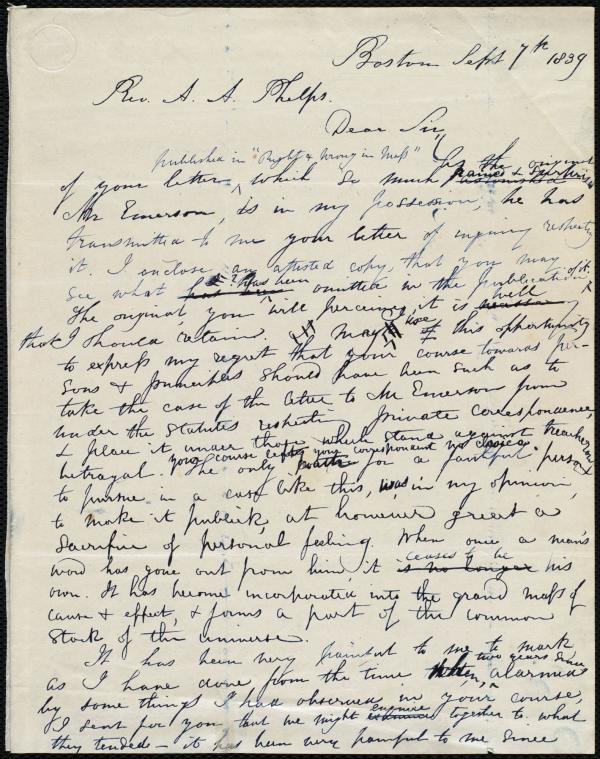 Boston Sept 7th 1839
Rev. A. A. Phelps.
Dear Sir,
published in "Right & Wrong in Mass" the original
of your letter, which so much
Mr Emerson, is in my possession, he has
transmitted to me your letter of inquiry respecting
it. I enclose an attested copy, that you may
see what has been omitted in the publication of it.
The original, you will perceive, it is well
that I should retain. I may use this opportunity
to express my regret that your course towards per-
sons & principles should have been such as to
take the case of the letter to Mr Emerson from
under the statutes respecting private correspondence,
& place it under those which stand against treachery &
betrayal. your course left your correspondent no choice
The only for a faithful person
to pursue in a case like this, was in my opinion,
to make it publick, at however great a
sacrifice of personal feeling. When once a man's
word has gone out from him, it ceases to be
is no longer his
own. It has become incorporated into the grand mass of
cause & effect, & forms a part of the common
stock of the universe.
It has been very painful to me to mark
as I have done from the time two years since
when, alarmed
by some things I had observed in your course,
I sent for you that we might enquire together to what
they tended — it has been very painful to me since